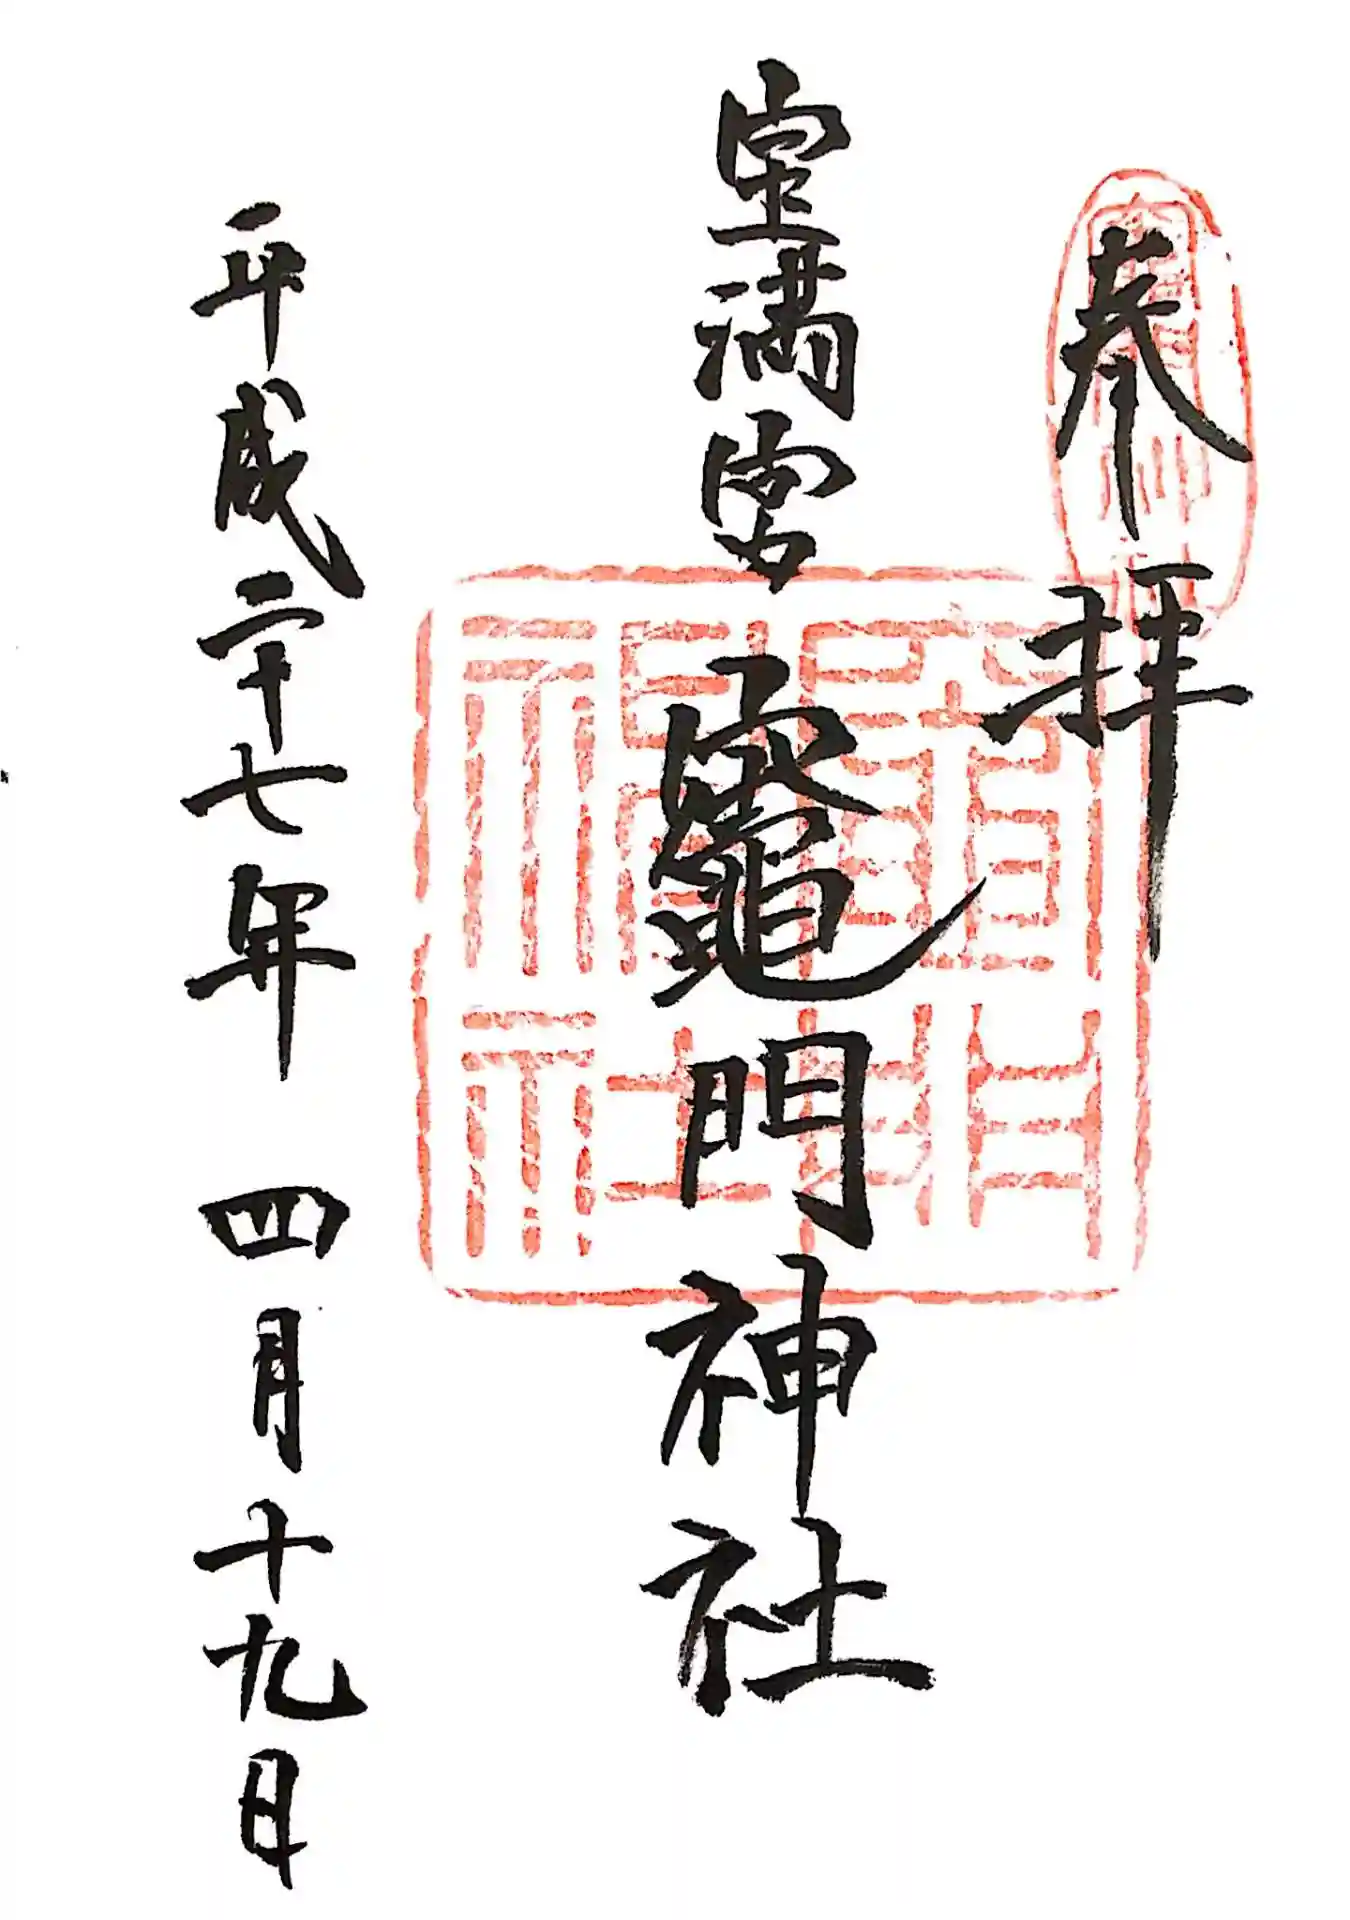 奉拝
宝満宮
竈門神社
平成二十七年 四月十九日